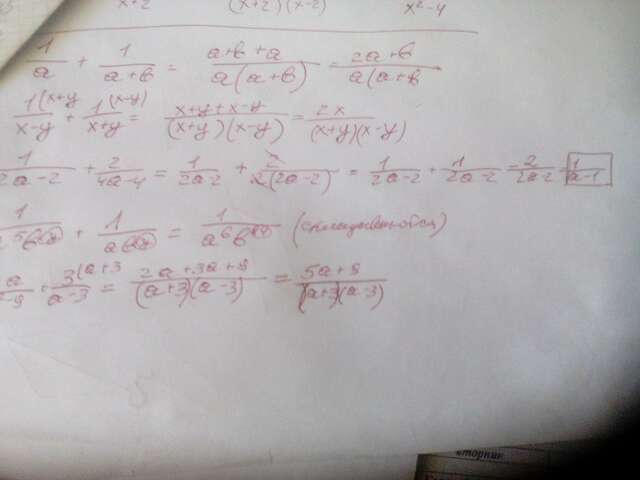 x+2 (x+2)(x-2) x²-4
1/a + 1/(a+b) = (a+b+a)/(a(a+b)) = (2a+b)/(a(a+b
1(x+y/(x-y) + 1(x-y)/(x+y) = (x+y+x-y)/((x+y)(x-y)) = 2x/((x+y)(x-y))
1/(2a-2) + 2/(4a-4) = 1/(2a-2) + 2/(2(2a-2)) = 1/(2a-2) + 1/(2a-2) = 2/(2a-2) = 1/(a-1)
1/ + 1/ = 1/ (складываются)
a/ + 3(a+3/(a-3) = (2a+3a+9)/((a+3)(a-3)) = (5a+9)/((a+3)(a-3))
вторник